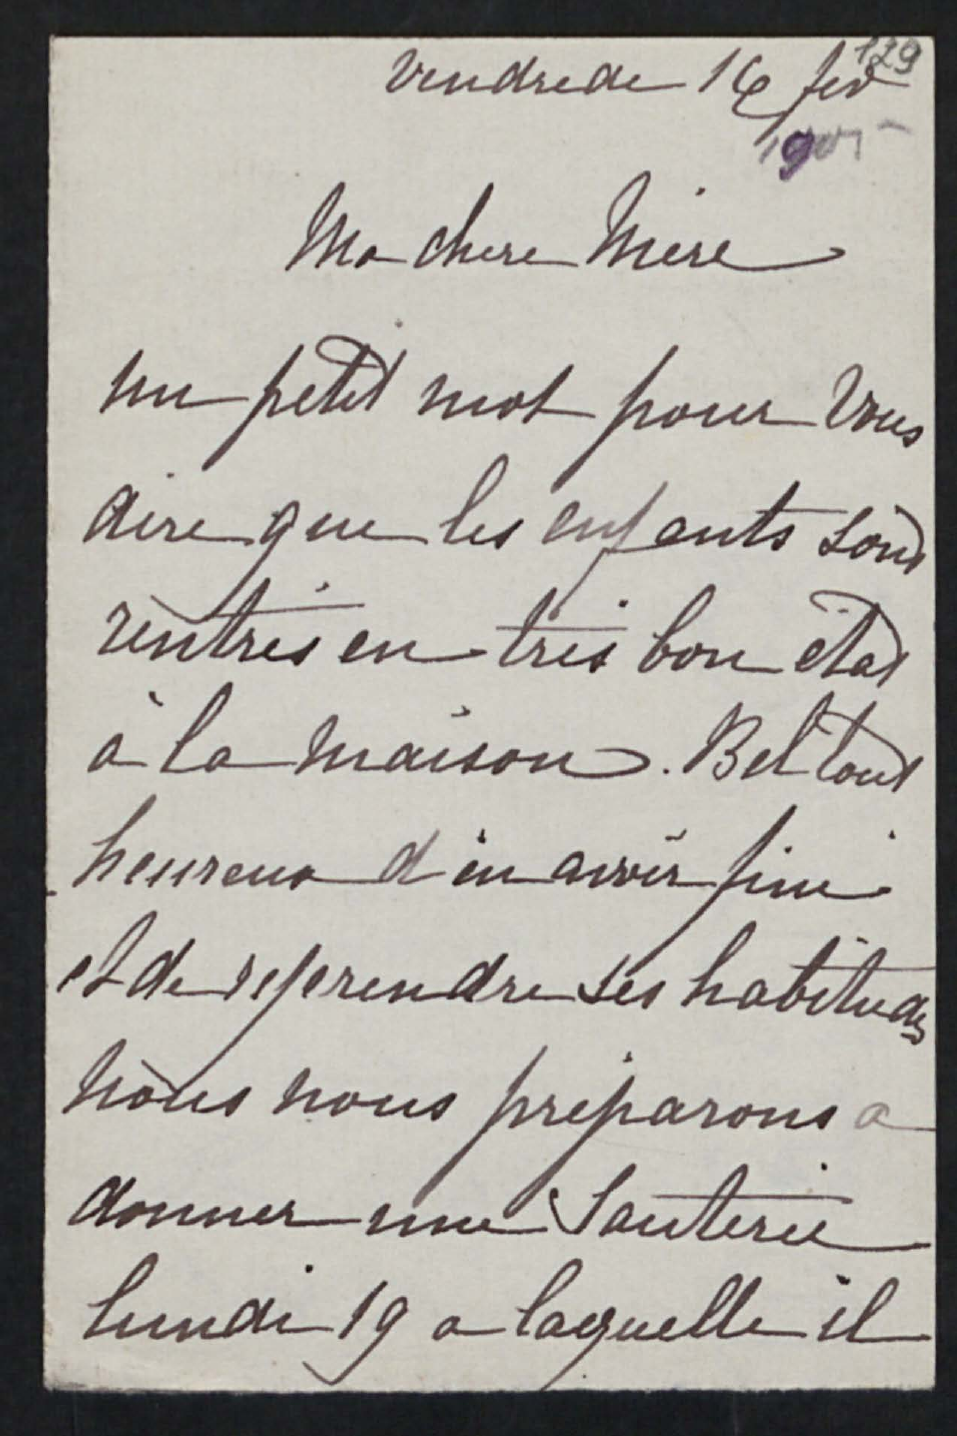 129
Vendredi 16 fev
Ma chere Mere
un petit mot pour vous
dire que les enfants sont
rentrés en très bon état
à la maison. Bel tout
heureux d'en avoir fini
et de reprendre ses habitudes
Nous nous préparons a
donner une Sauterie
lundi 19 a laquelle il